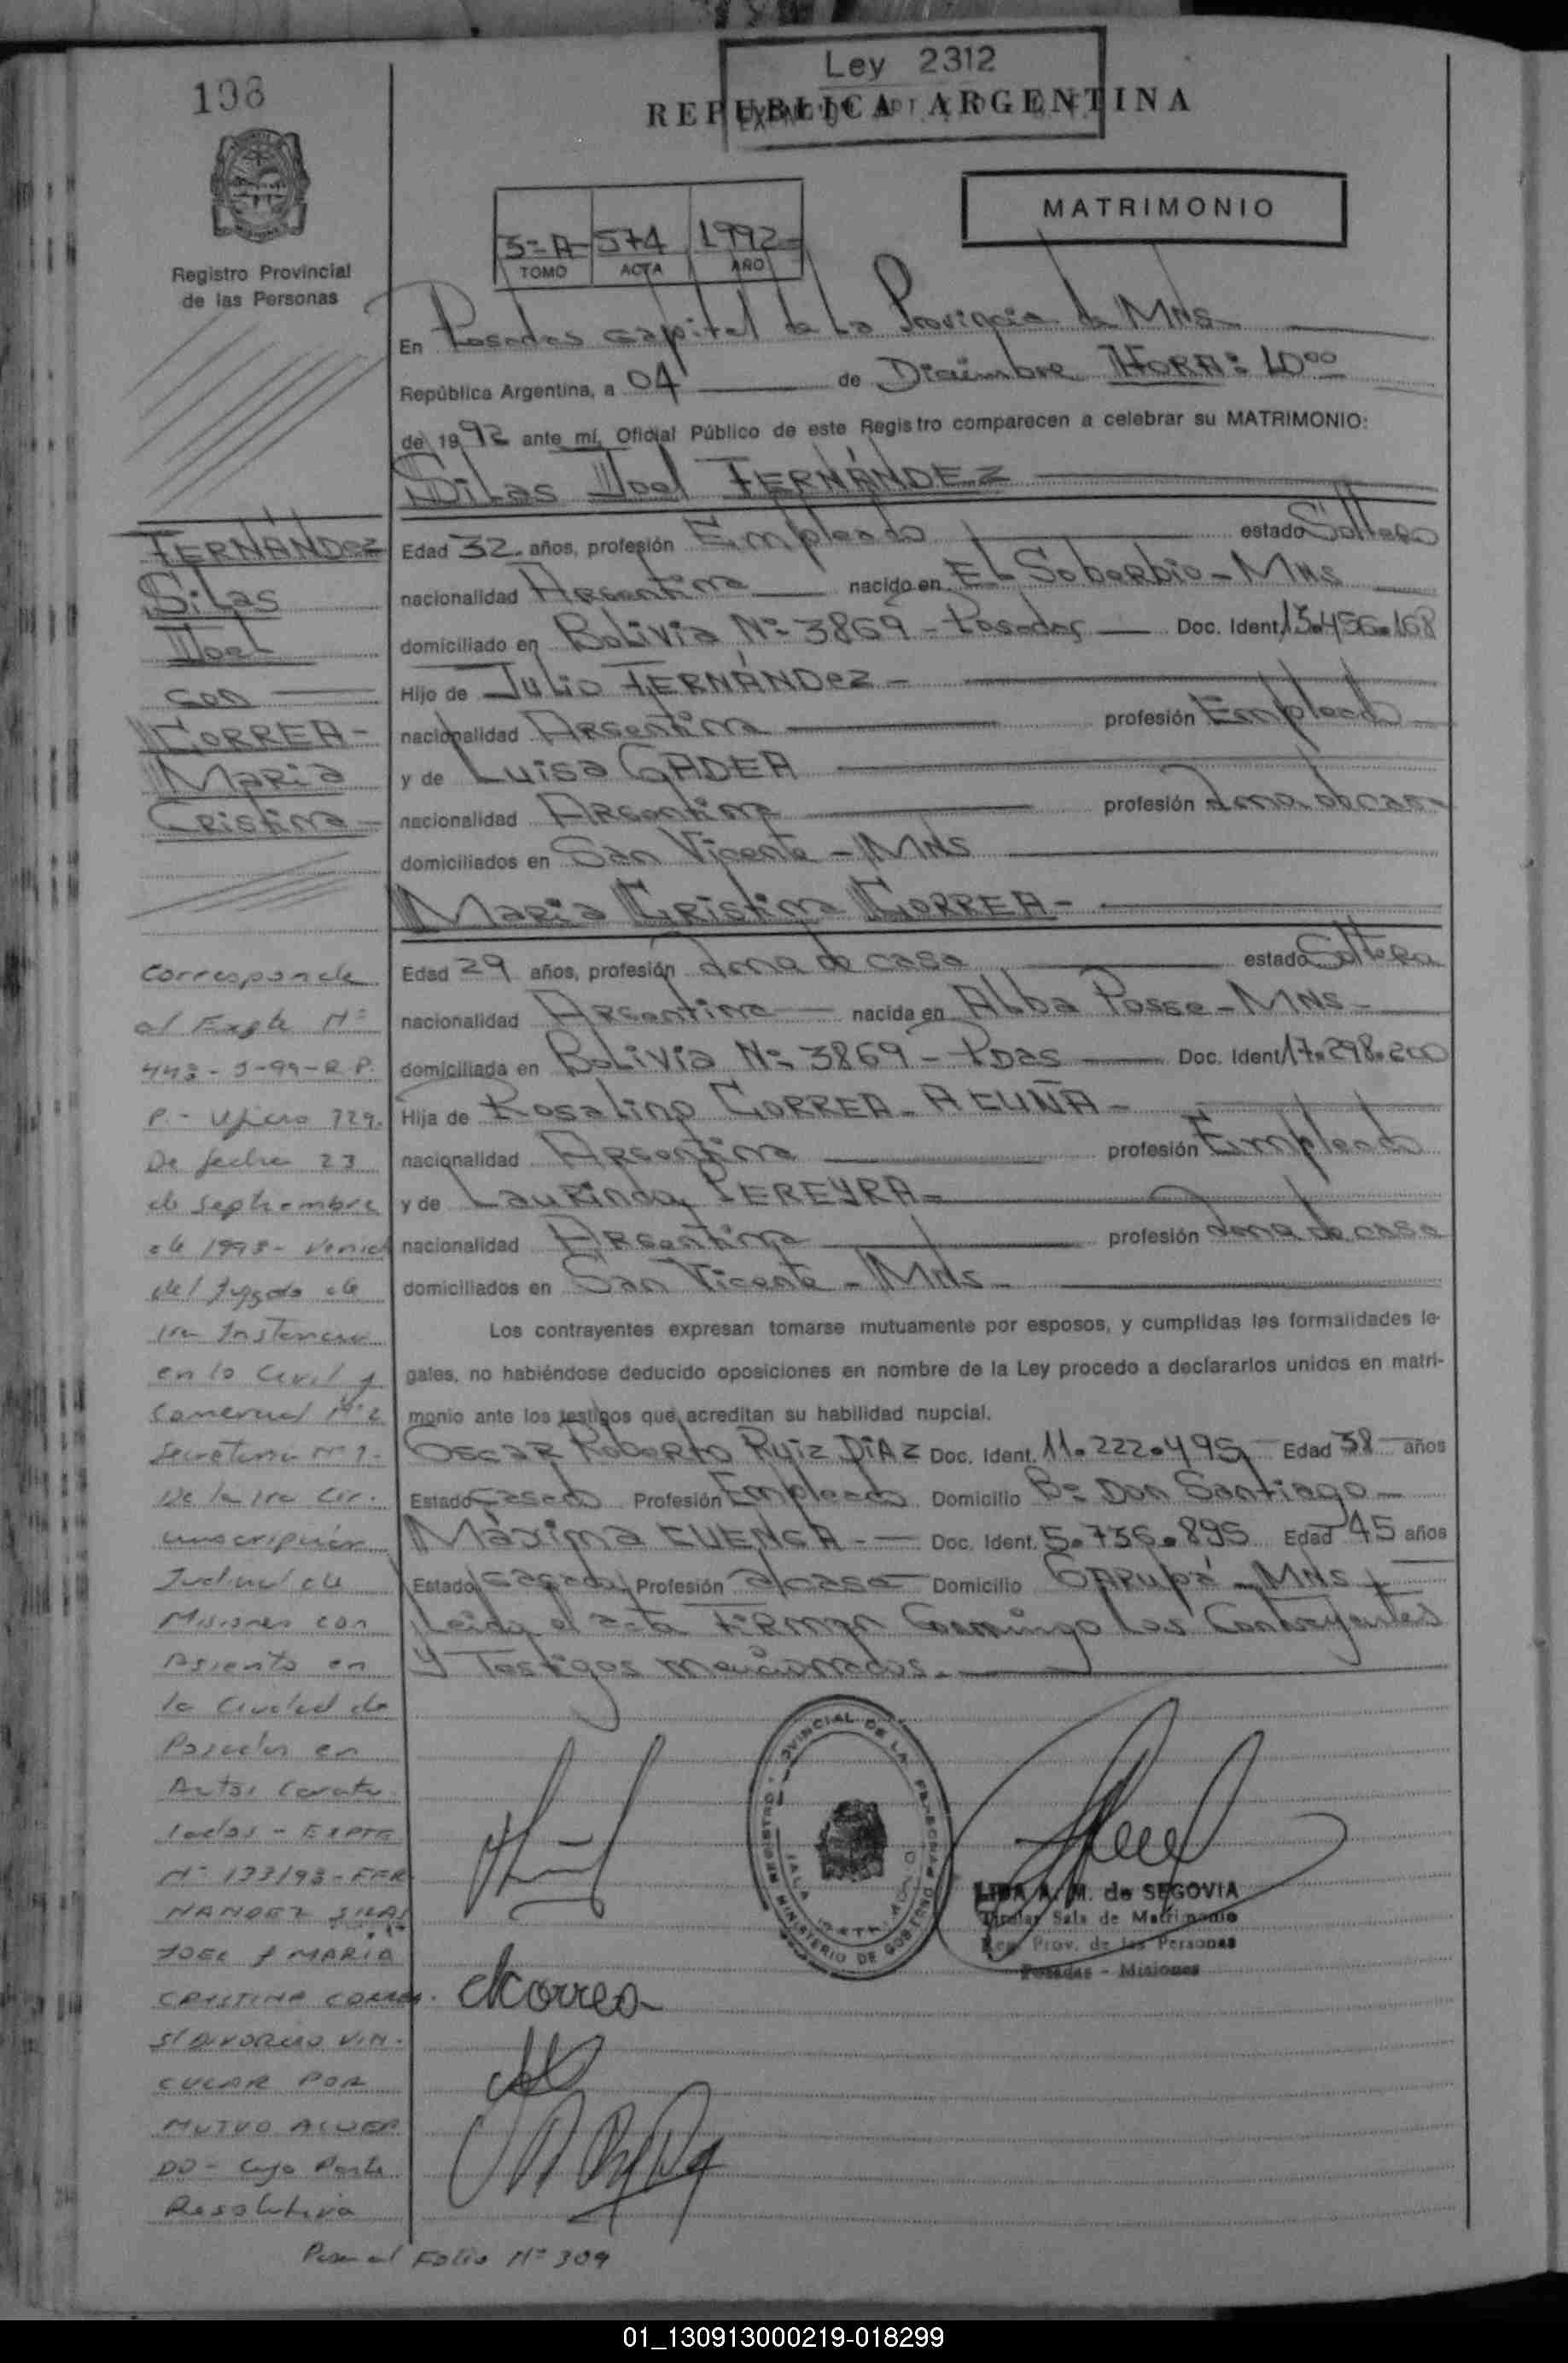 198
Ley 2312
REPUBLICA ARGENTINA
MATRIMONIO
3º A 574 1992
TOMO ACTA AÑO
Registro Provincial
de las Personas
En Posadas capital de La Provincia de Mns
República Argentina, a 04 de Diciembre HORA: 10ºº
de 1992 ante mí, Oficial Público de este Registro comparecen a celebrar su MATRIMONIO:
Silas Joel FERNÁNDEZ
Edad 32 años, profesión Empleado estado Soltero
nacionalidad Argentina nacido en El Soberbio - Mns
domiciliado en Bolivia Nº 3869 - Posadas Doc. Ident. 13.456.168
Hijo de Julio FERNÁNDez -
nacionalidad Argentina profesión Empleado
y de Luisa GADEA
nacionalidad Argentina profesión Ama de casa
domiciliados en San Vicente - Mns
Maria Cristina CORREA -
Edad 29 años, profesión Ama de casa estado Soltera
nacionalidad Argentina nacida en Alba Posse - Mns -
domiciliada en Bolivia Nº 3869 - Pdas Doc. Ident. 17.298.200
Hija de Rosalino CORREA - ACUÑA -
nacionalidad Argentina profesión Empleado
y de Laurinda PEREYRA -
nacionalidad Argentina profesión Ama de casa
domiciliados en San Vicente - Mns -
Los contrayentes expresan tomarse mutuamente por esposos, y cumplidas las formalidades le-
gales, no habiéndose deducido oposiciones en nombre de la Ley procedo a declararlos unidos en matri-
monio ante los testigos que acreditan su habilidad nupcial.
Oscar Roberto Ruiz DÍAZ Doc. Ident. 11.222.495 Edad 38 años
Estado Casado Profesión Empleado Domicilio Bº Don Santiago
Máxima CUENCA - Doc. Ident. 5.736.895 Edad 45 años
Estado casada Profesión a/casa Domicilio GARUPÁ - Mns
Leida el acta FIRMAN Conmingo Los Contrayentes
y Testigos mencionados.
FERNÁNDez
Silas
Joel
con
CORREA -
Maria
Cristina -
Corresponde
al Expte Nº
443 - J-99-R.P.
P. - Oficio 729.
De fecha 23
de septiembre
de 1993 - venid
del Juzgado de
1ra Instancia
en lo Civil y
Comercial Nº 2
Secretaria Nº 1 -
De la 1ra Cir.
cunscripción
Judicial de
Misiones con
Asiento en
la Ciudad de
Posadas en
Autos Caratu
lados - EXPTE
Nº 133/93 - FER
NANDEZ SILAS
JOEL Y MARIA
CRISTINA CORREA.
S/ DIVORCIO VIN.
CULAR POR
MUTUO ACUER
DO - Cuya Parte
Resolutiva
Pasa al Folio Nº 309
REGISTRO PROVINCIAL DE LAS PERSONAS
MINISTERIO DE GOBIERNO
LIDA A. M. de SEGOVIA
Titular Sala de Matrimonio
Reg. Prov. de las Personas
Posadas - Misiones
MCorrea
01_130913000219-018299